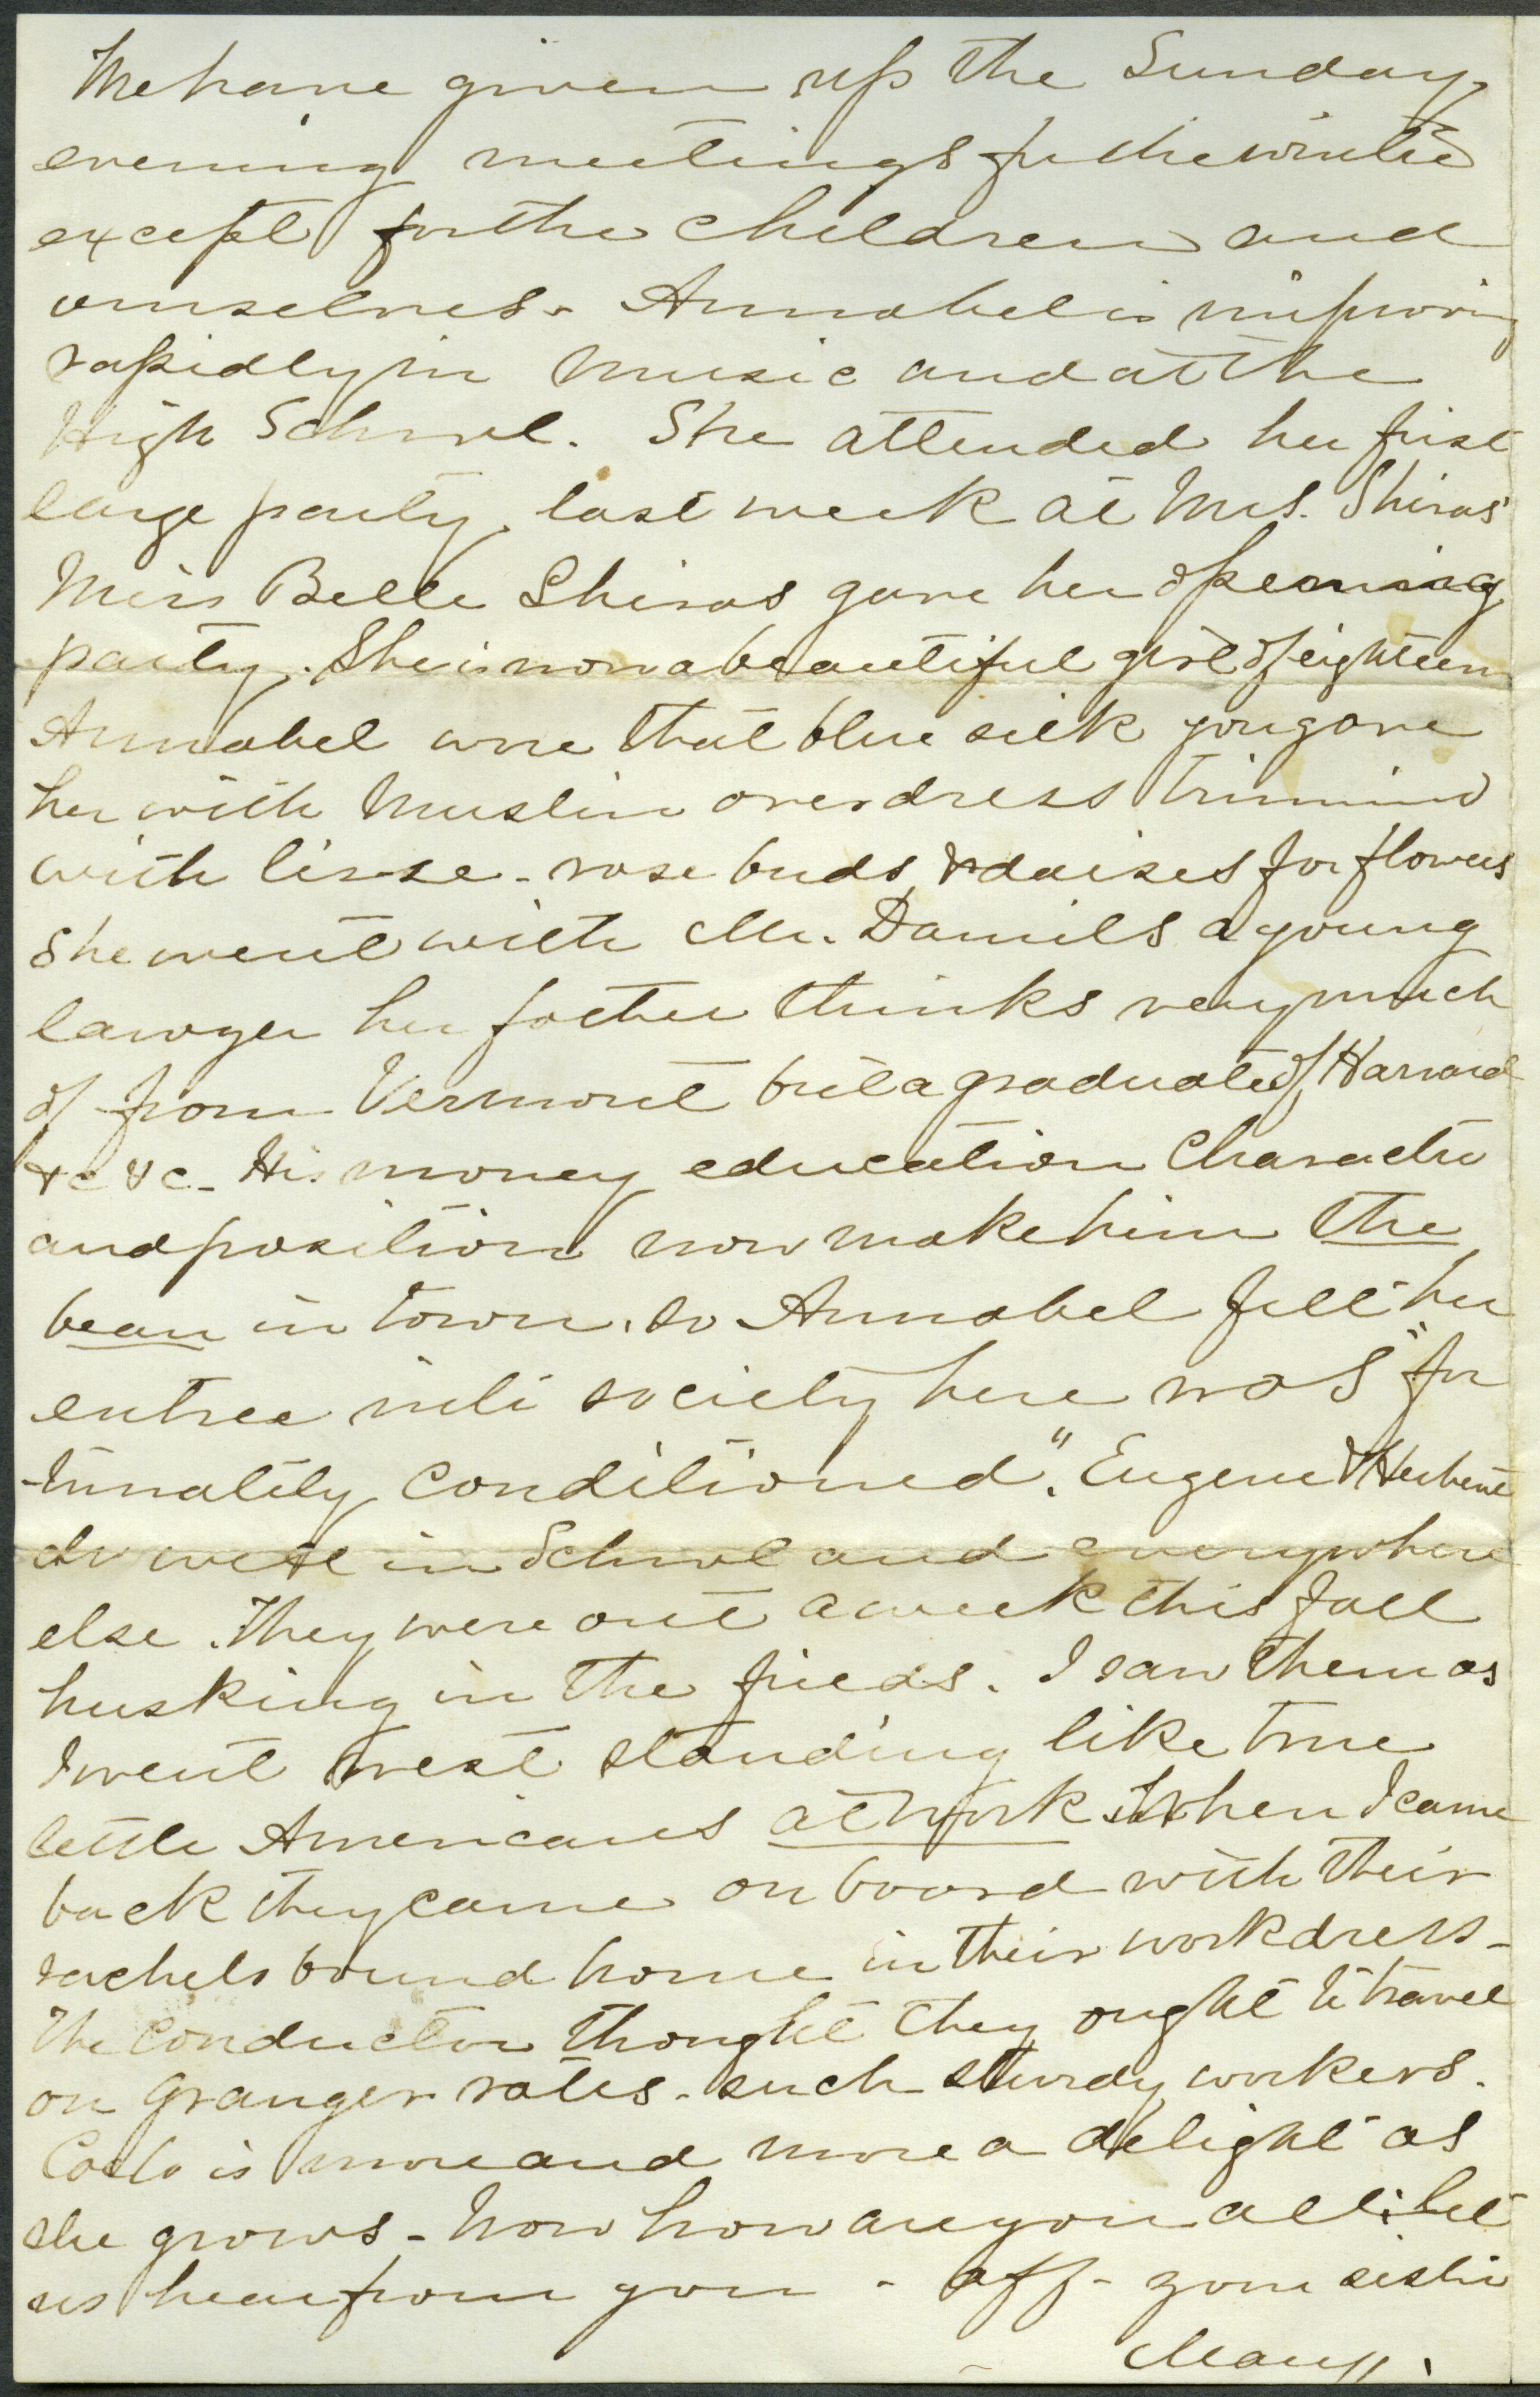 We have given up the Sunday
evening meetings for the winter
except for the children and
ourselves. Annabel is improving
rapidly in music and at the
High School. She attended her first
large party, last week at Mrs. Shiras'
Miss Belle Shiras gave her opening
party. She is now a beautiful girl of eighteen
Annabel wore that blue silk you gave
her with muslin overdress trimmed
with lisse - rose buds & daises for flowers
she went with Mr. Daniels a young
lawyer her father thinks very much
of from Vermont but a graduate of Harvard
&c &c - His money education Character
and position now make him the
beau in town. So Annabel felt her
entree into society here was "for
-tunately conditioned". Eugene & Herbert
do well in School and everywhere
else. They were out a week this fall
husking in the fields. I saw them as
I went west standing like true
little Americans at work. When I came
back they came on board with their
sachels bound home in their work dress -
The Conductor thought they ought to travel
on granger rates - such sturdy workers.
is more and more a delight as
she grows - Now how are you all? let
us hear from you - aff - your sister
Mary.